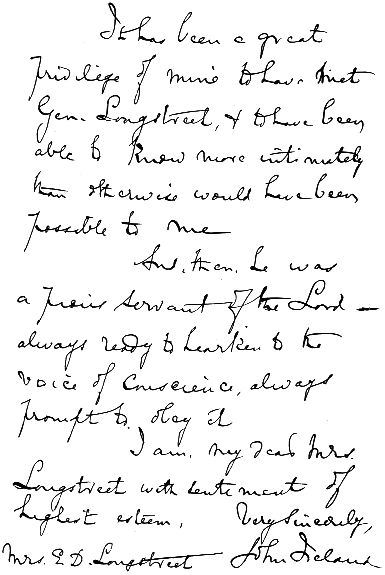 It has been a great
privilege of mine to have met
Gen. Longstreet, & to have been
able to know more intimately
than otherwise would have been
possible to me
And, then, he was
a pious servant of the Lord —
always ready to hearken to the
voice of Conscience, always
prompt to obey it
I am, my dear Mrs.
Longstreet with sentiment of
highest esteem, Very sincerely,
Mrs. E. D. Longstreet John Ireland